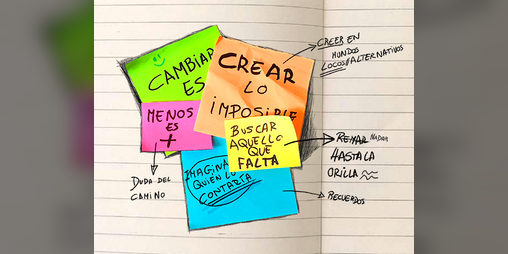 CAMBIAR
ES
CREAR
LO
IMPOSIBLE
MENOS
ES
+
BUSCAR
AQUELLO
QUE
FALTA
IMAGINA
QUIEN LO
CONTARÍA
CREER EN
MUNDOS
LOCOS/ALTERNATIVOS
REMAR NADAR
HASTA LA
ORILLA
DUDA DEL
CAMINO
RECUERDOS